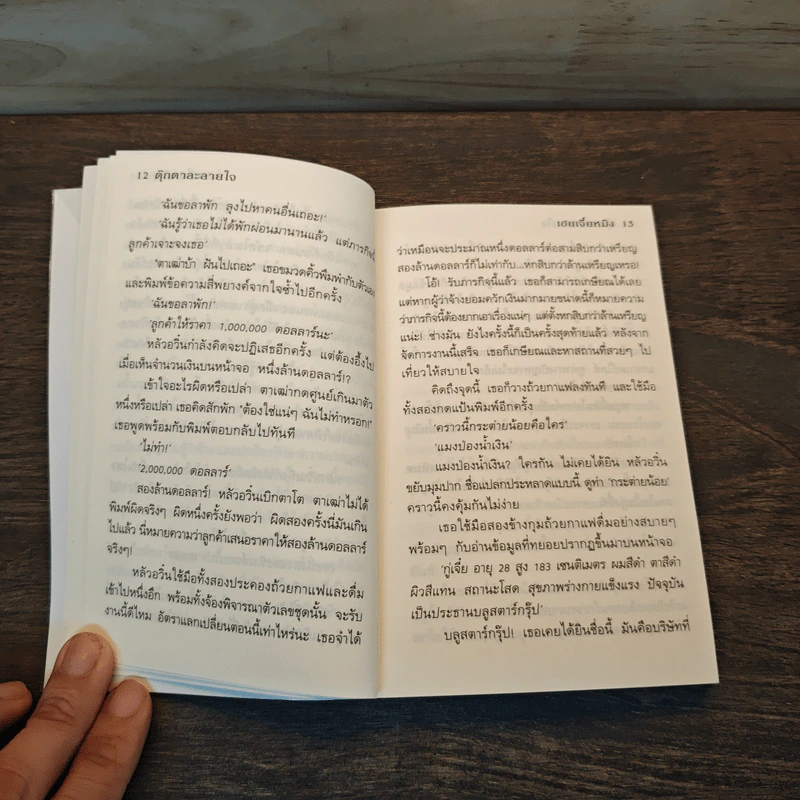 12 ตุ๊กตาละลายใจ
'ฉันขอลาพัก ลุงไปหาคนอื่นเถอะ!'
'ฉันรู้ว่าเธอไม่ได้พักผ่อนมานานแล้ว แต่ภารกิจนี้
ลูกค้าเจาะจงเธอ'
"ตาเฒ่าบ้า ฝันไปเถอะ" เธอขมวดคิ้วพึมพำกับตัวเอง
และพิมพ์ข้อความสี่พยางค์จากใจซ้ำไปอีกครั้ง
'ฉันขอลาพัก!'
'ลูกค้าให้ราคา 1,000,000 ดอลลาร์นะ'
หลัวอวิ๋นกำลังคิดจะปฏิเสธอีกครั้ง แต่ต้องอึ้งไป
เมื่อเห็นจำนวนเงินบนหน้าจอ หนึ่งล้านดอลลาร์!?
เข้าใจอะไรผิดหรือเปล่า ตาเฒ่ากดศูนย์เกินมาตัว
หนึ่งหรือเปล่า เธอคิดสักพัก "ต้องใช่แน่ๆ ฉันไม่ทำหรอก!"
เธอพูดพร้อมกับพิมพ์ตอบกลับไปทันที
'ไม่ทำ!'
'2,000,000 ดอลลาร์'
สองล้านดอลลาร์! หลัวอวิ๋นเบิกตาโต ตาเฒ่าไม่ได้
พิมพ์ผิดจริงๆ ผิดหนึ่งครั้งยังพอว่า ผิดสองครั้งนี่มันเกิน
ไปแล้ว นี่หมายความว่าลูกค้าเสนอราคาให้สองล้านดอลลาร์
จริงๆ!
หลัวอวิ๋นใช้มือทั้งสองประคองถ้วยกาแฟและดื่ม
เข้าไปหนึ่งอึก พร้อมทั้งจ้องพิจารณาตัวเลขชุดนั้น จะรับ
งานนี้ดีไหม อัตราแลกเปลี่ยนตอนนี้เท่าไหร่นะ เธอจำได้
เฮยเจี๋ยหมิง 13
ว่าเหมือนจะประมาณหนึ่งดอลลาร์ต่อสามสิบกว่าเหรียญ
สองล้านดอลลาร์ก็ไม่เท่ากับ...หกสิบกว่าล้านเหรียญเหรอ!
โอ้! รับภารกิจนี้แล้ว เธอก็สามารถเกษียณได้เลย
แต่หากผู้ว่าจ้างยอมควักเงินมากมายขนาดนี้ก็หมายความ
ว่าภารกิจนี้ต้องยากเอาเรื่องแน่ๆ แต่ตั้งหกสิบกว่าล้านเหรียญ
แน่ะ! ช่างมัน ยังไงครั้งนี้ก็เป็นครั้งสุดท้ายแล้ว หลังจาก
จัดการงานนี้เสร็จ เธอก็เกษียณและหาสถานที่สวยๆ ไป
เที่ยวให้สบายใจ
คิดถึงจุดนี้ เธอก็วางถ้วยกาแฟลงทันที และใช้มือ
ทั้งสองกดแป้นพิมพ์อีกครั้ง
'คราวนี้กระต่ายน้อยคือใคร'
'แมงป่องน้ำเงิน'
แมงป่องน้ำเงิน? ใครกัน ไม่เคยได้ยิน หลัวอวิ๋น
ขยับมุมปาก ชื่อแปลกประหลาดแบบนี้ ดูท่า 'กระต่ายน้อย'
คราวนี้คงคุ้มกันไม่ง่าย
เธอใช้มือสองข้างกุมถ้วยกาแฟดื่มอย่างสบายๆ
พร้อมๆ กับอ่านข้อมูลที่ทยอยปรากฏขึ้นมาบนหน้าจอ
'กู่เจี๋ย อายุ 28 สูง 183 เซนติเมตร ผมสีดำ ตาสีดำ
ผิวสีแทน สถานะโสด สุขภาพร่างกายแข็งแรง ปัจจุบัน
เป็นประธานบลูสตาร์กรุ๊ป'
บลูสตาร์กรุ๊ป! เธอเคยได้ยินชื่อนี้ มันคือบริษัทที่